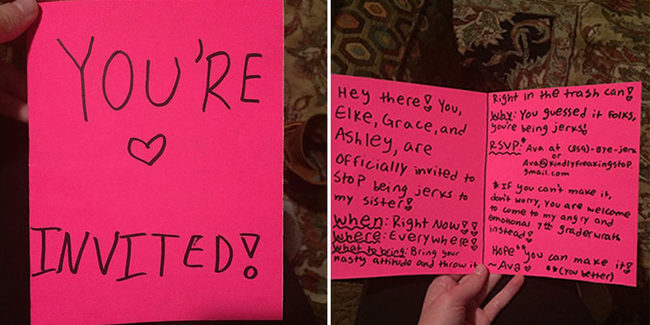 YOU'RE
INVITED!
Hey there! You,
Elke, Grace, and
Ashley, are
Officially invited to
stop being jerks to
my sister!
When: Right Now!!
Where: Everywhere!
What to bring: Bring your
nasty attitude and throw it
Right in the trash can!
Why: You guessed it folks,
you're being jerks!
RSVP: Ava at (859)-Bye-jerk
or
Ava@kindlyfreakingstop
gmail.com
*If you can't make it,
don't worry, you are welcome
to come to my angry and
emotional 7th grader wrath
instead!
HOPE** you can make it!
~Ava **(you better)